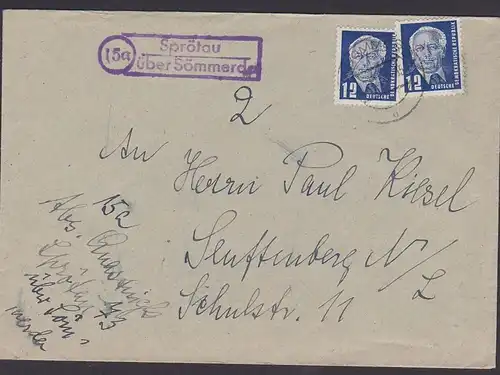 15a
Sprötau
über Sömmerda
12
DEUTSCHE
DEMOKRATISCHE REPUBLIK
12
DEUTSCHE
DEMOKRATISCHE REPUBLIK
2
An Herrn Paul Kiesel
Senftenberg N/L
Schulstr. 11
Abs.
15a
Sprötau
über Söm-
merda